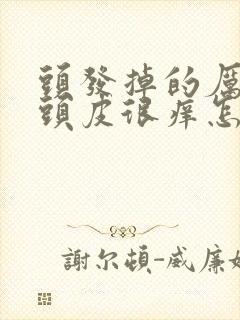 頭發掉的厲
頭皮很痒怎
謝尔頓-威廉